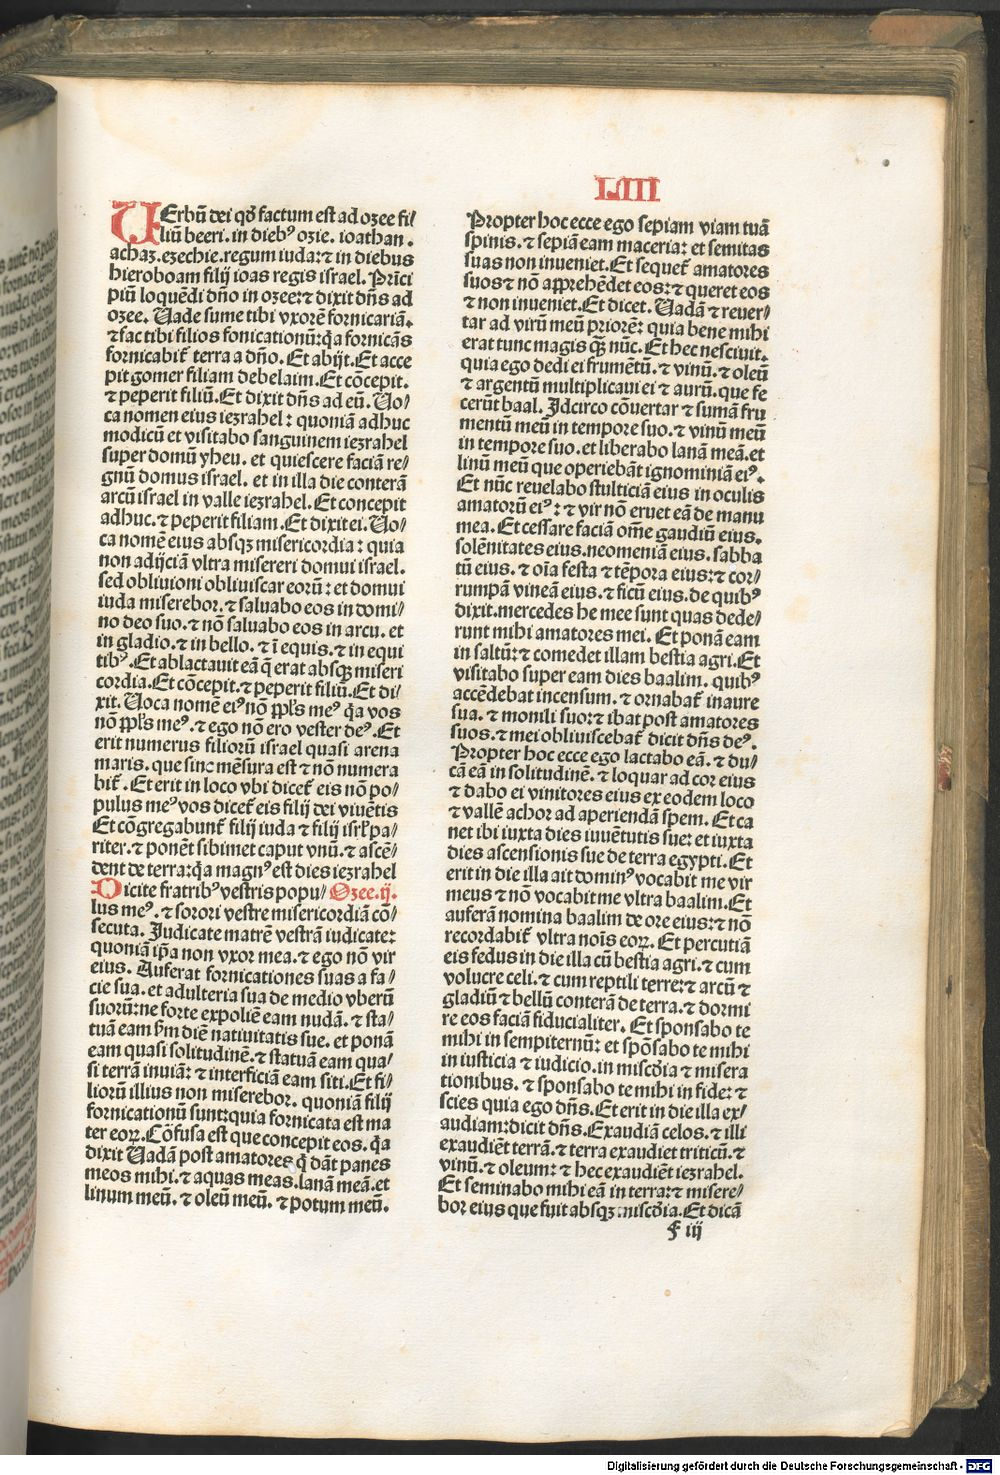 LIII
UErbū dei qḋ factum est ad ozee fi/
liū beeri. in dieb⁹ ozie. ioathan.
achaz. ezechie. regum iuda: ⁊ in diebus
hieroboam filij ioas regis israel. Prīci
piū loquēdi dño in ozee: ⁊ dixit dñs ad
ozee. Uade sume tibi vxorē fornicariā.
⁊ fac tibi filios fonicationū: q̄a fornicās
fornicabit̃ terra a dño. Et abijt. Et acce
pit gomer filiam debelaim. Et cōcepit.
⁊ peperit filiū. Et dixit dñs ad eū. Uo/
ca nomen eius iezrahel: quoniā adhuc
modicū et visitabo sanguinem iezrahel
super domū yheu. et quiescere faciā re/
gnū domus israel. et in illa die conterā
arcū israel in valle iezrahel. Et concepit
adhuc. ⁊ peperit filiam. Et dixit ei. Uo/
ca nomē eius absqꝫ misericordia: quia
non adijciā vltra misereri domui israel.
sed obliuioni obliuiscar eorū: et domui
iuda miserebor. ⁊ saluabo eos in domi/
no deo suo. ⁊ nō saluabo eos in arcu. et
in gladio. ⁊ in bello. ⁊ ī equis. ⁊ in equi
tib⁹. Et ablactauit eā q̄ erat absqꝫ miseri
cordia. Et cōcepit. ⁊ peperit filiū. Et di/
xit. Uoca nomē ei⁹ nō ppl̄s me⁹ q̄a vos
nō ppl̄s me⁹. ⁊ ego nō ero vester de⁹. Et
erit numerus filiorū israel quasi arena
maris. que sine mēsura est ⁊ nō numera
bit̃. Et erit in loco vbi dicet̃ eis nō po/
pulus me⁹ vos dicet̃ eis filij dei viuētis
Et cōgregabunt̃ filij iuda ⁊ filij isrl̄ pa/
riter. ⁊ ponēt sibimet caput vnū. ⁊ ascē/
dent de terra: q̄a magn⁹ est dies iezrahel
Dicite fratrib⁹ vestris popu/ Ozee. ij.
lus me⁹. ⁊ sorori vestre misericordiā cō/
secuta. Judicate matrē vestrā iudicate:
quoniā ip̄a non vxor mea. ⁊ ego nō vir
eius. Auferat fornicationes suas a fa/
cie sua. et adulteria sua de medio vberū
suorū: ne forte expoliē eam nudā. ⁊ sta/
tuā eam ẜm diē natiuitatis sue. et ponā
eam quasi solitudinē. ⁊ statuā eam qua/
si terrā inuiā: ⁊ interficiā eam siti. Et fi/
liorū illius non miserebor. quoniā filij
fornicationū sunt: quia fornicata est ma
ter eoꝝ. Cōfusa est que concepit eos. q̄a
dixit Uadā post amatores q̄ dāt panes
meos mihi. ⁊ aquas meas. lanā meā. et
linum meū. ⁊ oleū meū. ⁊ potum meū.
Propter hoc ecce ego sepiam viam tuā
spinis. ⁊ sepiā eam maceria: et semitas
suas non inueniet. Et sequet̃ amatores
suos ⁊ nō apprehēdet eos: ⁊ queret eos
⁊ non inueniet. Et dicet. Uadā ⁊ reuer/
tar ad virū meū priorē: quia bene mihi
erat tunc magis qꝫ̄ nūc. Et hec nesciuit.
quia ego dedi ei frumētū. ⁊ vinū. ⁊ oleū
⁊ argentū multiplicaui ei ⁊ aurū. que fe
cerūt baal. Jdcirco cōuertar ⁊ sumā fru
mentū meū in tempore suo. ⁊ vinū meū
in tempore suo. et liberabo lanā meā. et
linū meū que operiebāt ignominiā ei⁹.
Et nūc reuelabo stulticiā eius in oculis
amatorū ei⁹: ⁊ vir nō eruet eā de manu
mea. Et cessare faciā om̄e gaudiū eius.
solēnitates eius. neomeniā eius. sabba
tū eius. ⁊ oīa festa ⁊ tēpora eius: ⁊ cor/
rumpā vineā eius. ⁊ ficū eius. de quib⁹
dixit. mercedes he mee sunt quas dede/
runt mihi amatores mei. Et ponā eam
in saltū: ⁊ comedet illam bestia agri. Et
visitabo super eam dies baalim. quib⁹
accēdebat incensum. ⁊ ornabat̃ inaure
sua. ⁊ monili suo: ⁊ ibat post amatores
suos. ⁊ mei obliuiscebat̃ dicit dñs de⁹.
Propter hoc ecce ego lactabo eā. ⁊ du/
cā eā in solitudinē. ⁊ loquar ad cor eius
⁊ dabo ei vinitores eius ex eodem loco
⁊ vallē achor ad aperiendā spem. Et ca
net ibi iuxta dies iuuētutis sue: et iuxta
dies ascensionis sue de terra egypti. Et
erit in die illa ait domin⁹ vocabit me vir
meus ⁊ nō vocabit me vltra baalim. Et
auferā nomina baalim de ore eius: ⁊ nō
recordabit̃ vltra noīs eoꝝ. Et percutiā
eis fedus in die illa cū bestia agri. ⁊ cum
volucre celi. ⁊ cum reptili terre: ⁊ arcū ⁊
gladiū ⁊ bellū conterā de terra. ⁊ dormi
re eos faciā fiducialiter. Et sponsabo te
mihi in sempiternū: et spōsabo te mihi
in iusticia ⁊ iudicio. in miscḋia ⁊ misera
tionibus. ⁊ sponsabo te mihi in fide: ⁊
scies quia ego dñs. Et erit in die illa ex/
audiam: dicit dñs. Exaudiā celos. ⁊ illi
exaudiēt terrā. ⁊ terra exaudiet triticū. ⁊
vinū. ⁊ oleum: ⁊ hec exaudiēt iezrahel.
Et seminabo mihi eā in terra: ⁊ misere/
bor eius que fuit absqꝫ miscḋia. Et dicā
f iij
Digitalisierung gefördert durch die Deutsche Forschungsgemeinschaft - DFG